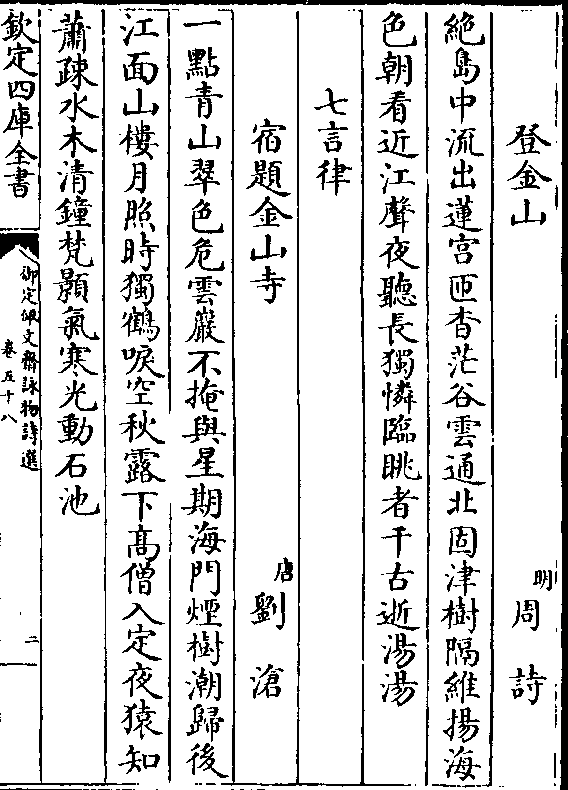 登金山　明周詩
絶島中流出蓮宫匝杳茫谷雲通北固津樹隔維揚海
色朝看近江聲夜聽長獨憐臨眺者千古逝湯湯
七言律
宿題金山寺　唐劉滄
一點青山翠色危雲巖不掩與星期海門煙樹潮歸後
江面山樓月照時獨鶴唳空秋露下髙僧入定夜猿知
蕭疎水木清鐘梵顥氣寒光動石池
欽定四庫全書
御定佩文齋詠物詩選
卷五十八
二